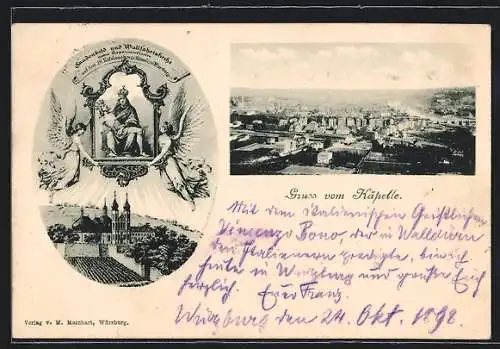 Gnadenbild und Wallfahrtskirche
Gruss vom Käpelle.
Mit dem italienischen Geistlichen
Vincenzo Bono, der in Walldürn
den Italienern predigte, bin ich
heute in Würzburg und grüße Euch
herzlich. Euer Franz.
Würzburg den 24. Okt. 1898
Verlag v. M. Meinhart, Würzburg.